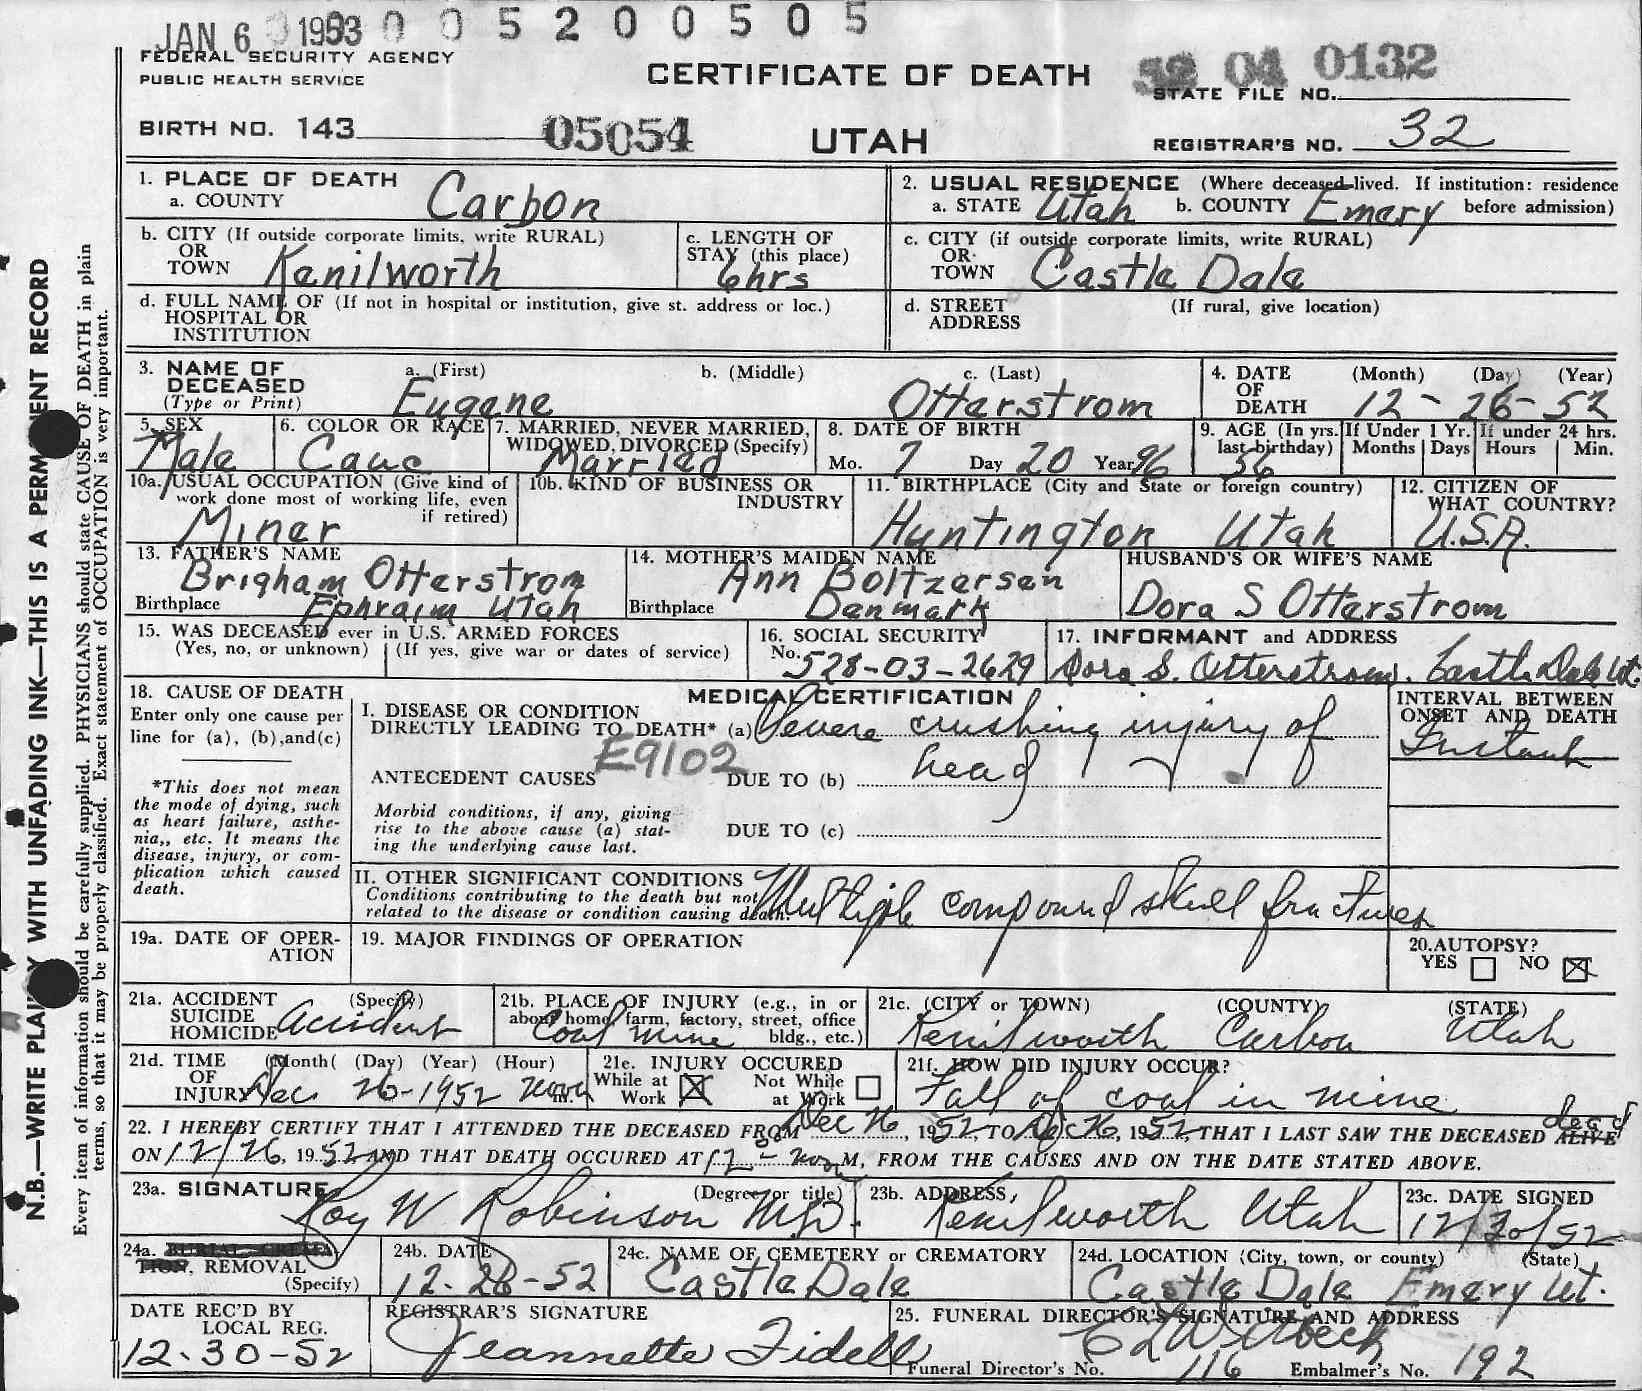 JAN 6 1953 0 0 5 2 0 0 5 0 5
FEDERAL SECURITY AGENCY
PUBLIC HEALTH SERVICE
CERTIFICATE OF DEATH
52 04 0132
STATE FILE NO.
BIRTH NO. 143 05054
UTAH
REGISTRAR'S NO. 32
1. PLACE OF DEATH
a. COUNTY Carbon
2. USUAL RESIDENCE (Where deceased lived. If institution: residence
a. STATE Utah b. COUNTY Emery before admission)
b. CITY (If outside corporate limits, write RURAL)
OR
TOWN Kenilworth
c. LENGTH OF
STAY (this place)
6hrs
c. CITY (if outside corporate limits, write RURAL)
OR
TOWN Castle Dale
d. FULL NAME OF (If not in hospital or institution, give st. address or loc.)
HOSPITAL OR
INSTITUTION
d. STREET (If rural, give location)
ADDRESS
3. NAME OF a. (First) b. (Middle) c. (Last)
DECEASED
(Type or Print) Eugene Otterstrom
4. DATE (Month) (Day) (Year)
OF
DEATH 12-26-52
5. SEX
Male
6. COLOR OR RACE
Cauc
7. MARRIED, NEVER MARRIED,
WIDOWED, DIVORCED (Specify)
Married
8. DATE OF BIRTH
Mo. 7 Day 20 Year 96
9. AGE (In yrs.
last birthday)
56
If Under 1 Yr.
Months Days
If under 24 hrs.
Hours Min.
10a. USUAL OCCUPATION (Give kind of
work done most of working life, even
if retired)
Miner
10b. KIND OF BUSINESS OR
INDUSTRY
11. BIRTHPLACE (City and State or foreign country)
Huntington Utah
12. CITIZEN OF
WHAT COUNTRY?
U.S.A.
13. FATHER'S NAME
Brigham Otterstrom
Birthplace Ephraim Utah
14. MOTHER'S MAIDEN NAME
Ann Boltzersen
Birthplace Danmark
HUSBAND'S OR WIFE'S NAME
Dora S Otterstrom
15. WAS DECEASED ever in U.S. ARMED FORCES
(Yes, no, or unknown) (If yes, give war or dates of service)
16. SOCIAL SECURITY
No. 528-03-2629
17. INFORMANT and ADDRESS
Dora S. Otterstrom. Castle Dale Ut.
18. CAUSE OF DEATH
Enter only one cause per
line for (a), (b),and(c)
*This does not mean
the mode of dying, such
as heart failure, asthe-
nia,, etc. It means the
disease, injury, or com-
plication which caused
death.
MEDICAL CERTIFICATION
I. DISEASE OR CONDITION
DIRECTLY LEADING TO DEATH* (a) Severe crushing injury of
E9102
ANTECEDENT CAUSES DUE TO (b) head
Morbid conditions, if any, giving
rise to the above cause (a) stat-
ing the underlying cause last.
DUE TO (c)
INTERVAL BETWEEN
ONSET AND DEATH
Instant
II. OTHER SIGNIFICANT CONDITIONS
Conditions contributing to the death but not
related to the disease or condition causing death.
Multiple compound skull fractures
19a. DATE OF OPER-
ATION
19. MAJOR FINDINGS OF OPERATION
20.AUTOPSY?
YES NO
21a. ACCIDENT (Specify)
SUICIDE
HOMICIDE Accident
21b. PLACE OF INJURY (e.g., in or
about home, farm, factory, street, office
bldg., etc.)
Coal mine
21c. (CITY or TOWN) (COUNTY) (STATE)
Kenilworth Carbon Utah
21d. TIME (Month( (Day) (Year) (Hour)
OF
INJURY Dec 26-1952 noon m.
21e. INJURY OCCURED
While at Work
Not While at Work
21f. HOW DID INJURY OCCUR?
Fall of coal in mine
22. I HEREBY CERTIFY THAT I ATTENDED THE DECEASED FROM Dec 26, 1952, TO Dec 26, 1952, THAT I LAST SAW THE DECEASED ALIVE dead
ON 12/26, 1952 AND THAT DEATH OCCURED AT 12-noon M, FROM THE CAUSES AND ON THE DATE STATED ABOVE.
23a. SIGNATURE (Degree or title)
Roy W Robinson M.D.
23b. ADDRESS,
Kenilworth Utah
23c. DATE SIGNED
12/30/52
24a. BURIAL, CREMA-
TION, REMOVAL
(Specify)
24b. DATE
12-28-52
24c. NAME OF CEMETERY or CREMATORY
Castle Dale
24d. LOCATION (City, town, or county) (State)
Castle Dale Emery Ut.
DATE REC'D BY
LOCAL REG.
12-30-52
REGISTRAR'S SIGNATURE
Jeannette Fidell
25. FUNERAL DIRECTOR'S SIGNATURE AND ADDRESS
Funeral Director's No. 116 Embalmer's No. 192
N.B.—WRITE PLAINLY WITH UNFADING INK—THIS IS A PERMANENT RECORD
Every item of information should be carefully supplied. PHYSICIANS should state CAUSE OF DEATH in plain
terms, so that it may be properly classified. Exact statement of OCCUPATION is very important.